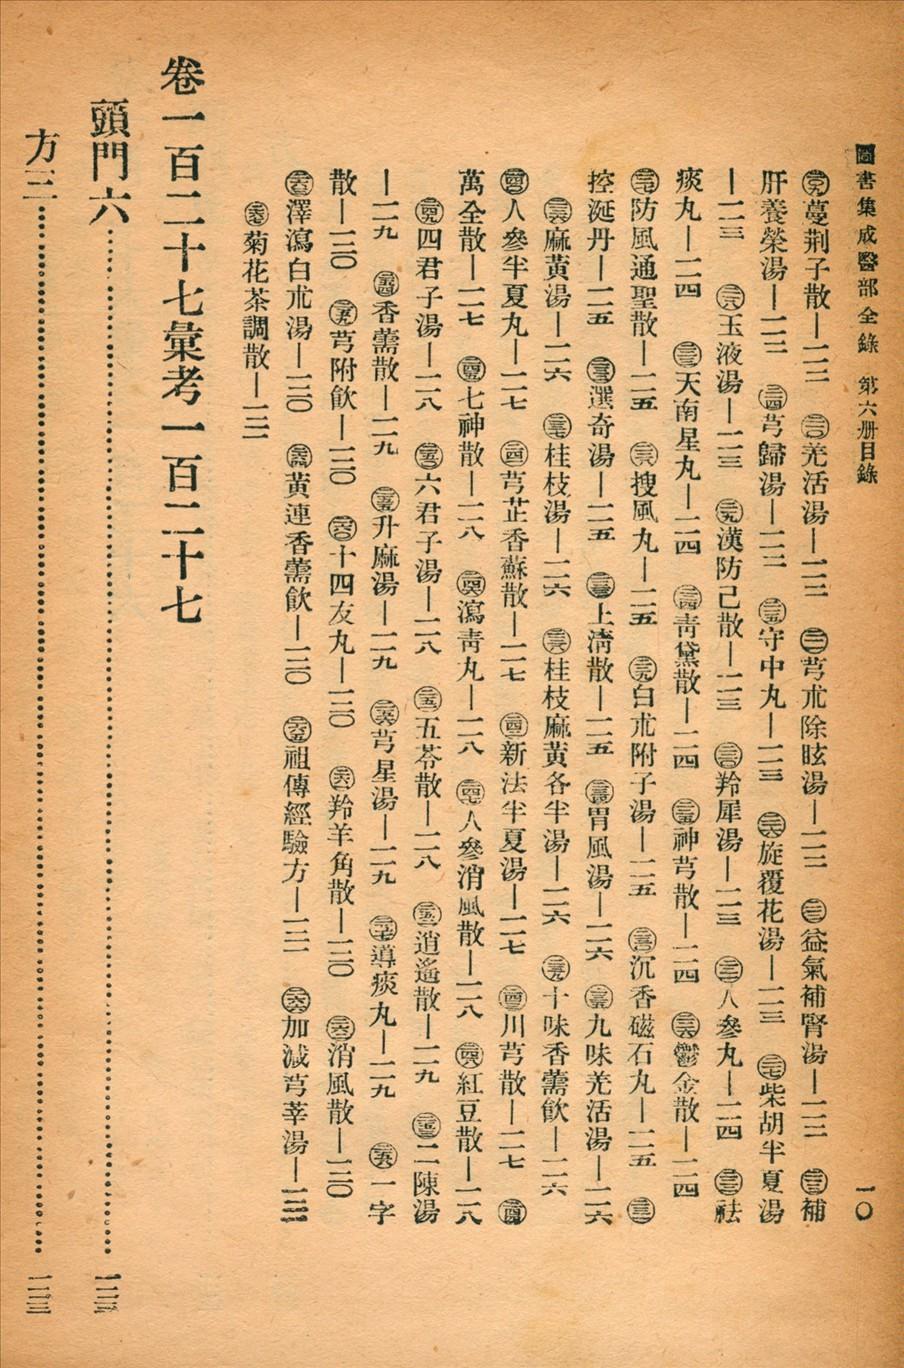 圖書集成醫部全錄　第六册目錄　一〇
二〇九蔓荊子散—一二二　二一〇羌活湯—一二二　二一一芎朮除眩湯—一二二　二一二益氣補腎湯—一二二　二一三補
肝養榮湯—一二二　二一四芎歸湯—一二二　二一五守中丸—一二三　二一六旋覆花湯—一二三　二一七柴胡半夏湯
—一二三　二一八玉液湯—一二三　二一九漢防己散—一二三　二二〇羚犀湯—一二三　二二一人參丸—一二四　二二二祛
痰丸—一二四　二二三天南星丸—一二四　二二四青黛散—一二四　二二五神芎散—一二四　二二六鬱金散—一二四
二二七防風通聖散—一二五　二二八搜風丸—一二五　二二九白朮附子湯—一二五　二三〇沉香磁石丸—一二五　二三一
控涎丹—一二五　二三二選奇湯—一二五　二三三上清散—一二五　二三四胃風湯—一二六　二三五九味羌活湯—一二六
二三六麻黃湯—一二六　二三七桂枝湯—一二六　二三八桂枝麻黃各半湯—一二六　二三九十味香薷飲—一二六
二四〇人參半夏丸—一二七　二四一芎芷香蘇散—一二七　二四二新法半夏湯—一二七　二四三川芎散—一二七　二四四
萬全散—一二七　二四五七神散—一二八　二四六瀉青丸—一二八　二四七人參消風散—一二八　二四八紅豆散—一二八
二四九四君子湯—一二八　二五〇六君子湯—一二八　二五一五苓散—一二八　二五二逍遙散—一二九　二五三二陳湯
—一二九　二五四香薷散—一二九　二五五升麻湯—一二九　二五六芎星湯—一二九　二五七導痰丸—一二九　二五八一字
散—一三〇　二五九芎附飲—一三〇　二六〇十四友丸—一三〇　二六一羚羊角散—一三〇　二六二消風散—一三〇
二六三澤瀉白朮湯—一三〇　二六四黃連香薷飲—一三〇　二六五祖傳經驗方—一三一　二六六加減芎莘湯—一三一
二六七菊花茶調散—一三一
卷一百二十七彙考一百二十七
頭門六……一三三
方三……一三三